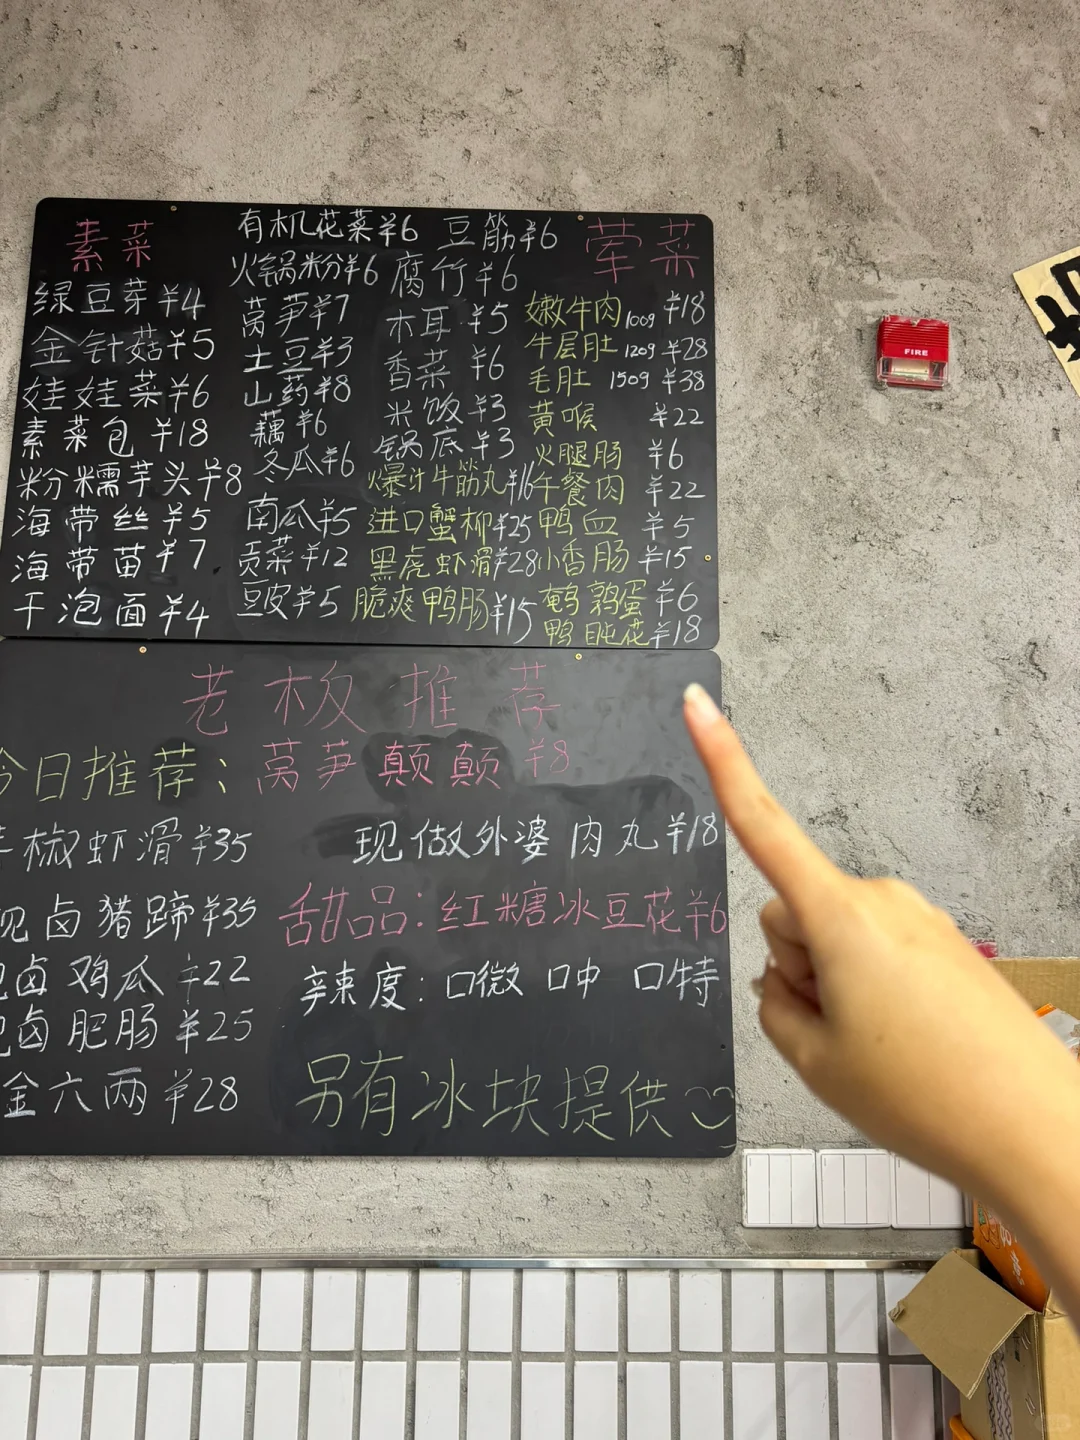 素菜
绿豆芽¥4
金针菇¥5
娃娃菜¥6
素菜包¥18
粉糯芋头¥8
海带丝¥5
海带苗¥7
干泡面¥4
有机花菜¥6
火锅粉¥6
莴笋¥7
土豆¥3
山药¥8
藕¥6
冬瓜¥6
南瓜¥5
贡菜¥12
豆皮¥5
豆筋¥6
腐竹¥6
木耳¥5
香菜¥6
米饭¥3
锅底¥3
爆汁牛筋丸¥16
进口蟹柳¥25
黑虎虾滑¥28
脆爽鸭肠¥15
荤菜
嫩牛肉100g ¥18
牛层肚120g ¥28
毛肚150g ¥38
黄喉¥22
火腿肠¥6
午餐肉¥22
鸭血¥5
小香肠¥15
鹌鹑蛋¥6
鸭肫花¥18
老板推荐
今日推荐:莴笋颠颠¥8
椒虾滑¥35
现卤猪蹄¥35
卤鸡瓜¥22
卤肥肠¥25
金六两¥28
现做外婆肉丸¥18
甜品:红糖冰豆花¥6
辣度:口微 口中 口特
另有冰块提供
FIRE